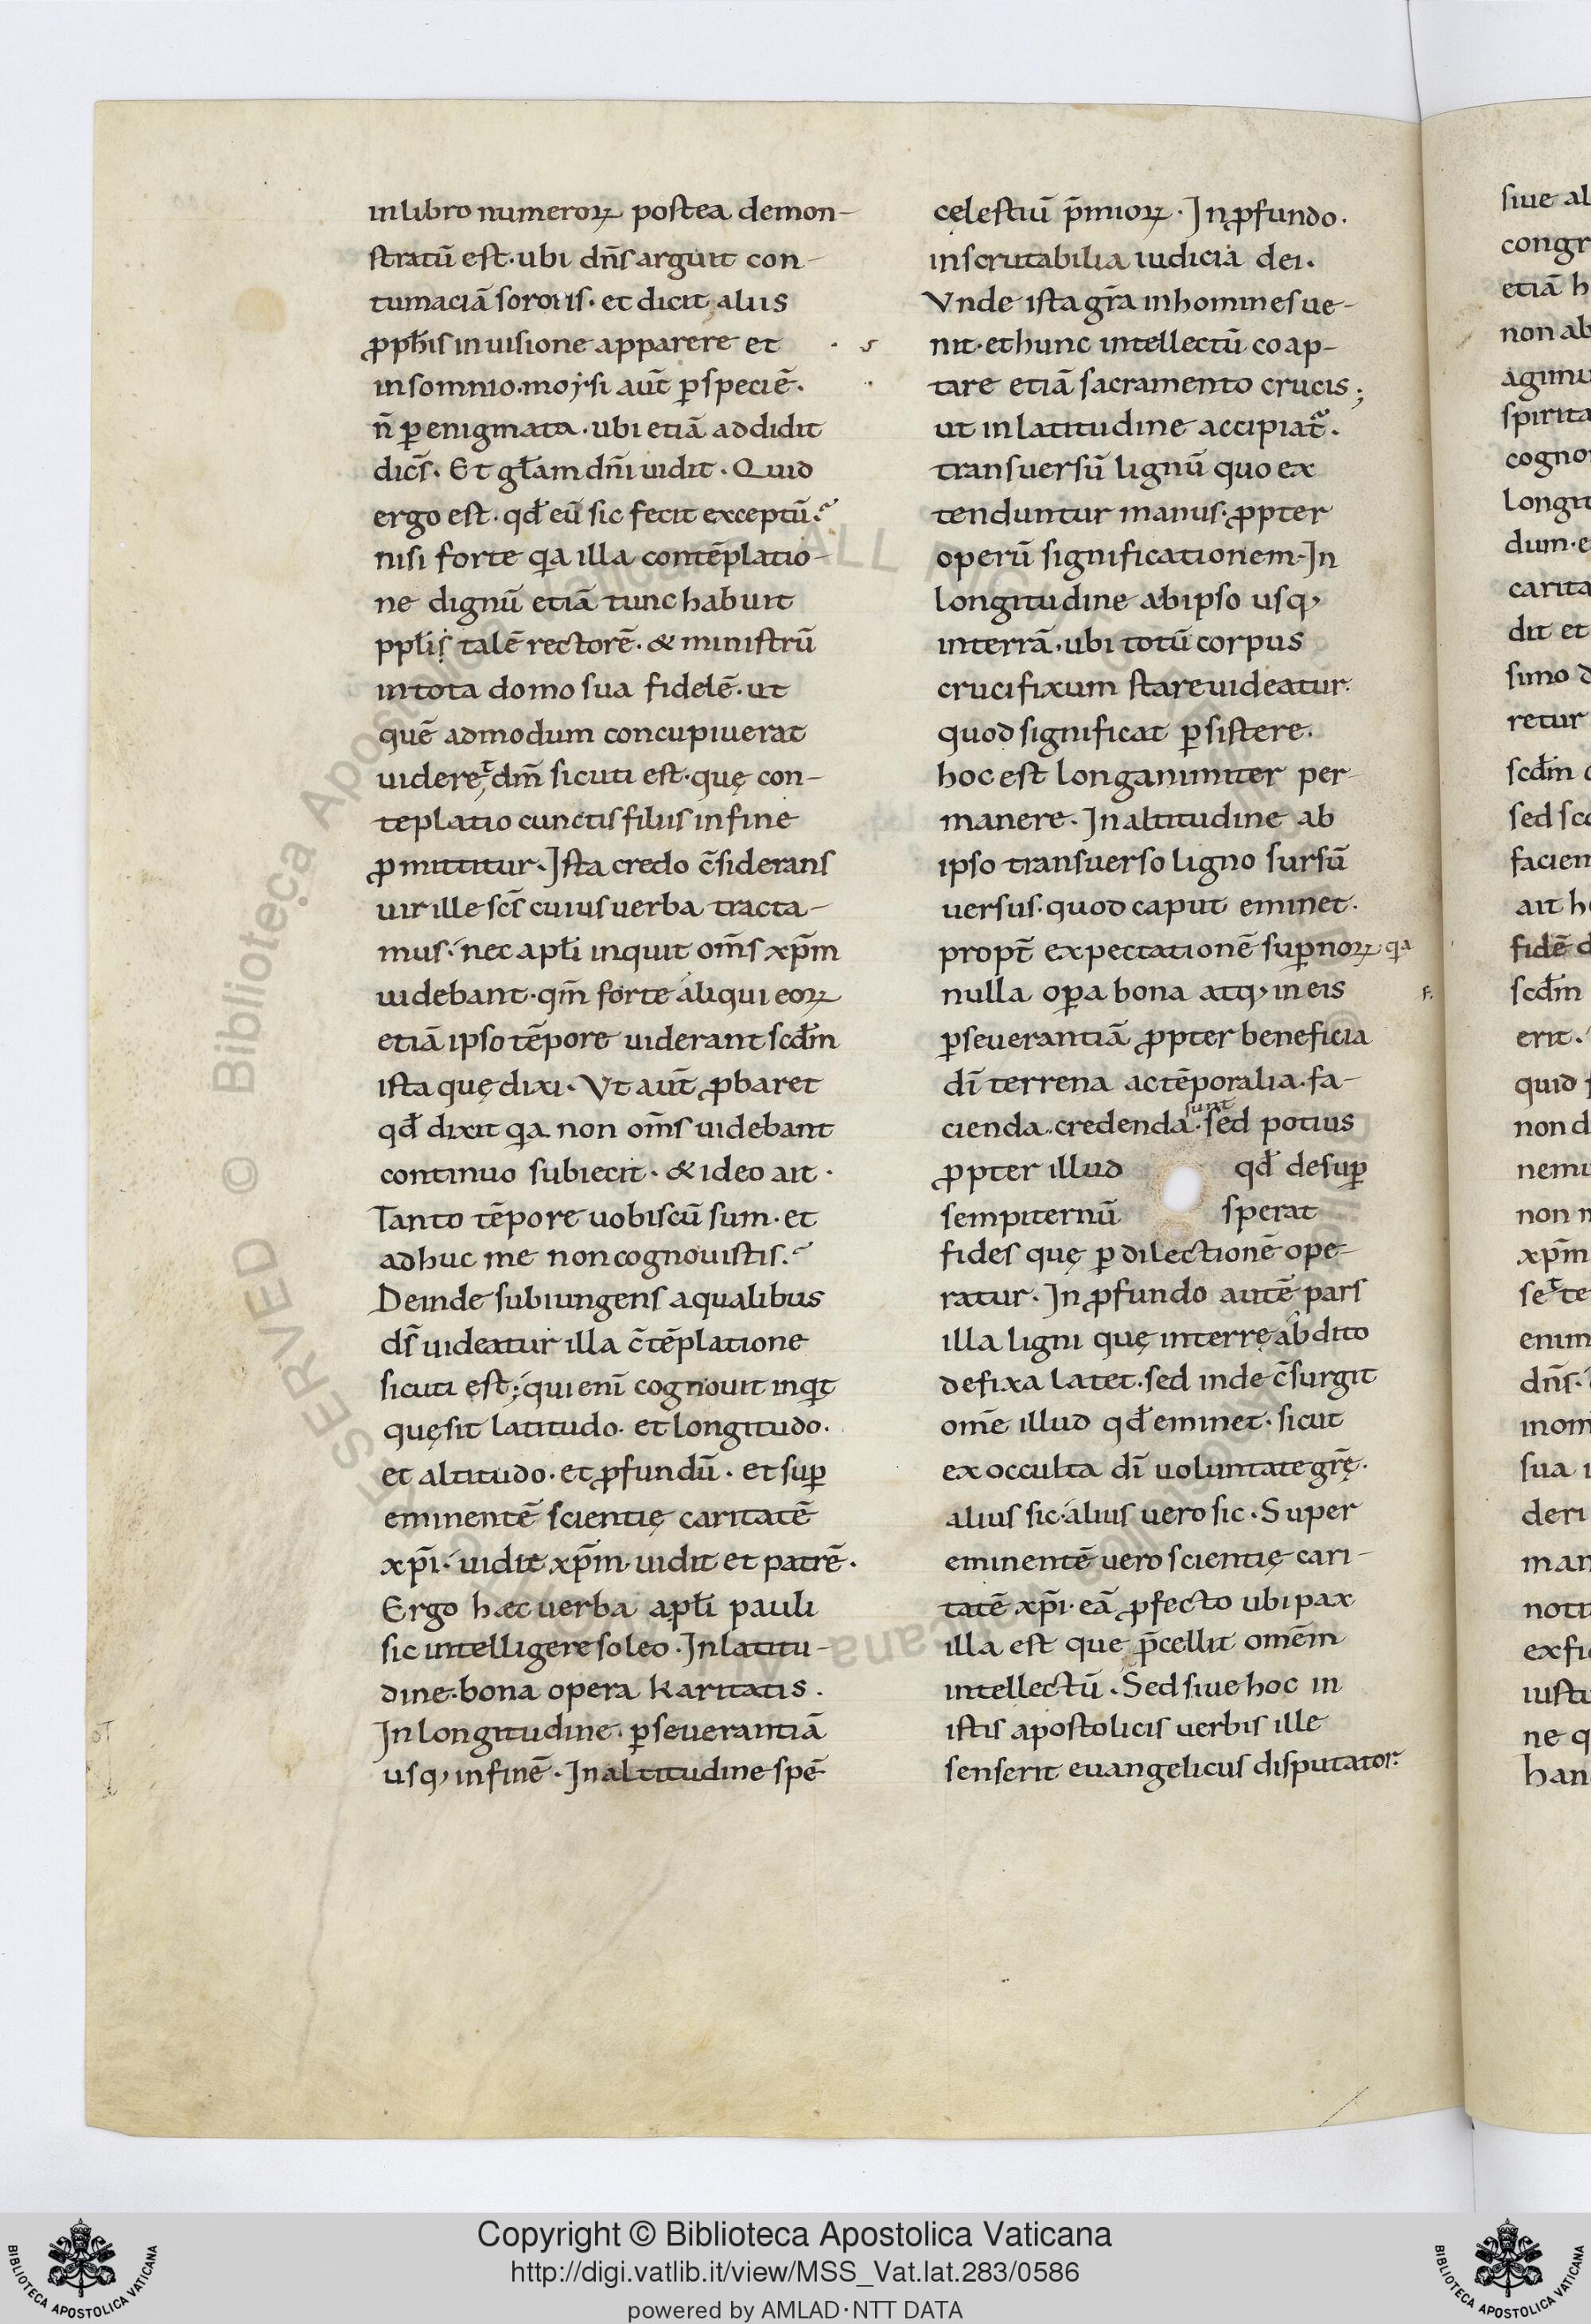 in libro numeroꝝ postea demon-
stratū est. ubi dn̄s arguit con-
tumaciā sororis. et dicit aliis
ꝓpħis in uisione apparere et
in somnio. moẏsi aūt ꝑ speciē.
n̄ ꝑ enigmata. ubi etiā addidit
dicēs. Et głam dn̄i uidit. Quid
ergo est. qđ eū sic fecit exceptū?
nisi forte qa illa contēplatio-
ne dignū etiā tunc habuit
ppłi sui talē rectorē. & ministrū
in tota domo sua fidelē. ut
quē admodum concupiuerat
uideret dm̄ sicuti est. quę con-
teplatio cunctis filiis in fine
ꝓmittitur. Ista credo c̄siderans
uir ille sc̄s cuius uerba tracta-
mus. nec apłi inquit om̄s xp̄m
uidebant. qm̄ forte aliqui eoꝝ
etiā ipso tēpore uiderant scđm
ista quę dixi. Vt aūt ꝓbaret
qđ dixit qa non om̄s uidebant
continuo subiecit. & ideo ait.
Tanto tēpore uobiscū sum. et
adhuc me non cognouistis?
Deinde subiungens a qualibus
ds̄ uideatur illa c̄tēplatione
sicuti est; qui enī cognouit inqt
quę sit latitudo. et longitudo.
et altitudo. et ꝓfundū. et suꝑ
eminentē scientię caritatē
xp̄i. uidit xp̄m. uidit et patrē.
Ergo hæc uerba apłi pauli
sic intelligere soleo. In latitu-
dine. bona opera karitatis.
In longitudine. ꝑseuerantiā
usq; in finē. In altitudine spē
cęlestiū p̄mioꝝ. In ꝓfundo.
inscrutabilia iudicia dei.
Vnde ista gr̄a in homines ue-
nit. et hunc intellectū coap-
tare etiā sacramento crucis;
ut in latitudine accipiat̄.
transuersū lignū quo ex
tenduntur manus. ꝓpter
operū significationem. In
longitudine ab ipso usq;
in terrā. ubi totū corpus
crucifixum stare uideatur.
quod significat ꝑsistere.
hoc est longanimiter per-
manere. In altitudine ab
ipso transuerso ligno sursū
uersus. quod caput eminet.
propt̄ expectationē suꝑnoꝝ. qa
nulla oꝑa bona atq; in eis
ꝑseuerantiā ꝓpter beneficia
dī terrena ac tēporalia. fa-
sunt
cienda. credenda. sed potius
ꝓpter illud qđ desuꝑ
sempiternū sperat
fides quę ꝑ dilectionē ope-
ratur. In ꝓfundo autē pars
illa ligni quę in terrę abdito
defixa latet. sed inde c̄surgit
om̄e illud qđ eminet. sicut
ex occulta dī uoluntate gr̄ę.
alius sic. alius uero sic. Super
eminentē uero scientię cari-
tatē xp̄i. eā ꝓfecto ubi pax
illa est que p̄cellit omēm
intellectū. Sed siue hoc in
istis apostolicis uerbis ille
senserit euangelicus disputator.
siue al
congr
etiā h
non ab
agimu
spirita
cogno
longit
dum. e
carita
dit et
simo d
retur
scđm
sed sc
facien
ait h
fidē d
scđm
erit.
quid
non d
nemi
non
xp̄m
se te
enim
dn̄s.
inom
sua
deri
man
notr
ex fi
iusti
ne q
han
Copyright © Biblioteca Apostolica Vaticana
http://digi.vatlib.it/view/MSS_Vat.lat.283/0586
powered by AMLAD·NTT DATA
BIBLIOTECA APOSTOLICA VATICANA
BIBLIOTECA APOSTOLICA VATICANA